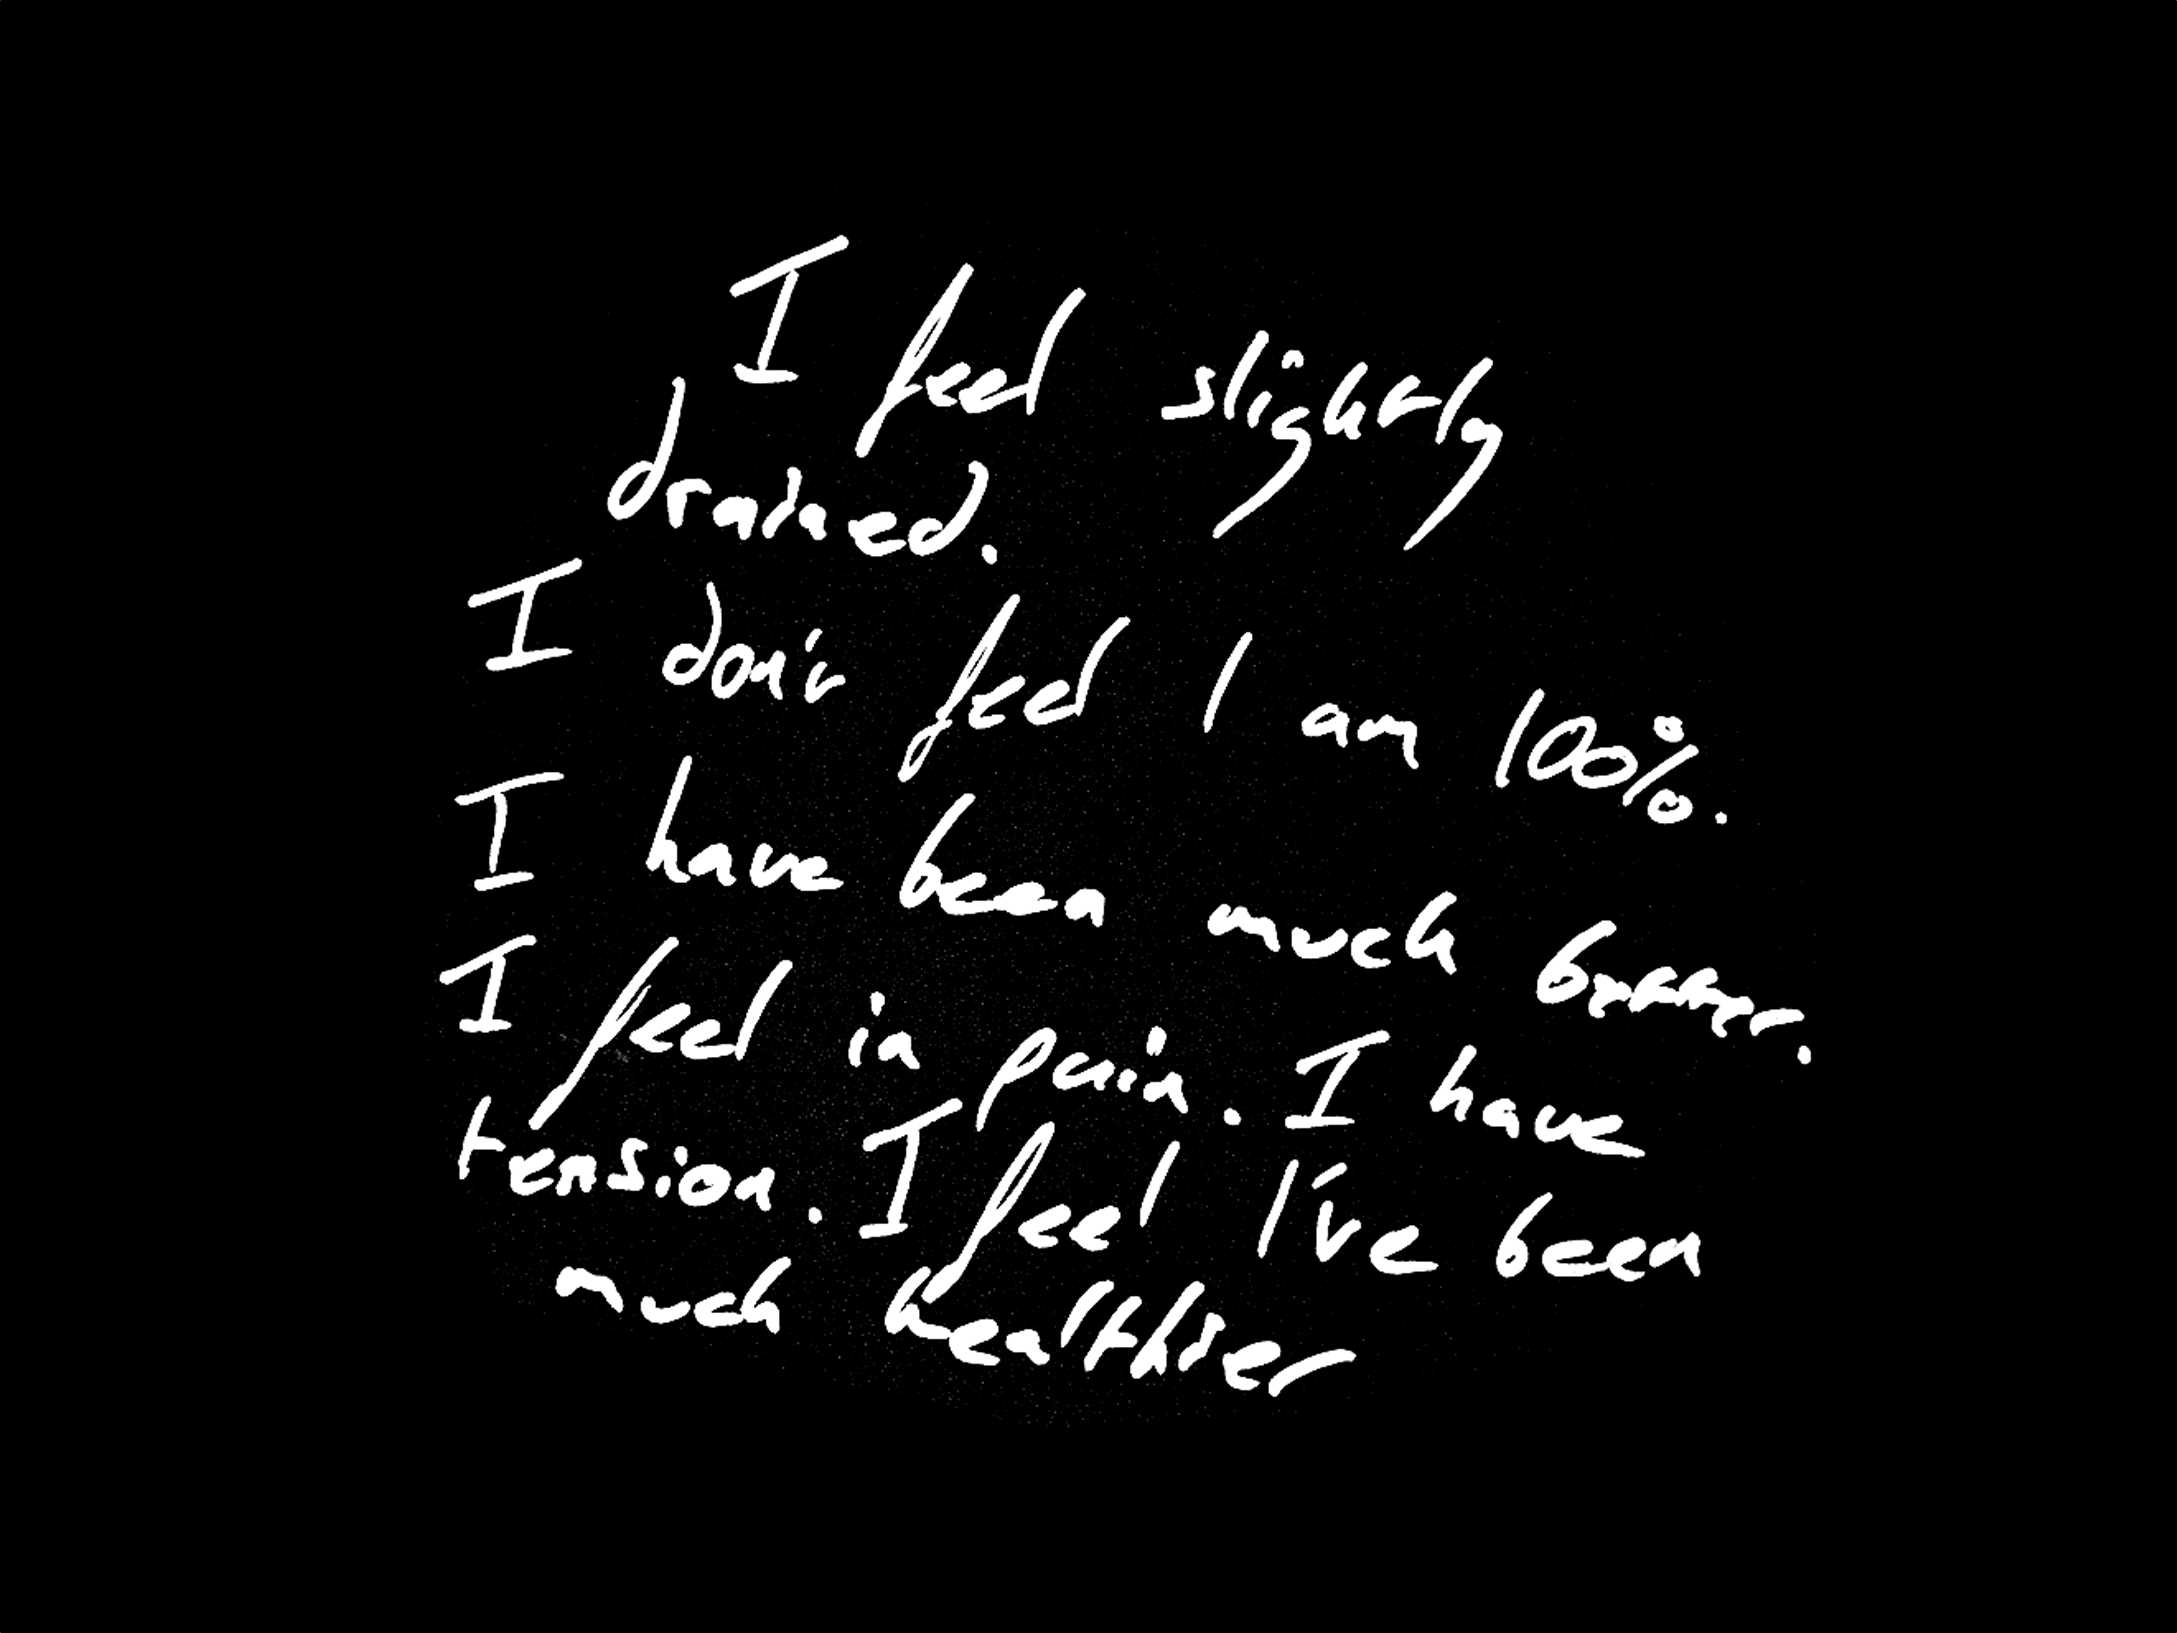 I feel slightly
drained.
I don't feel I am 100%.
I have been much better.
I feel in pain. I have
tension. I feel I've been
much healthier